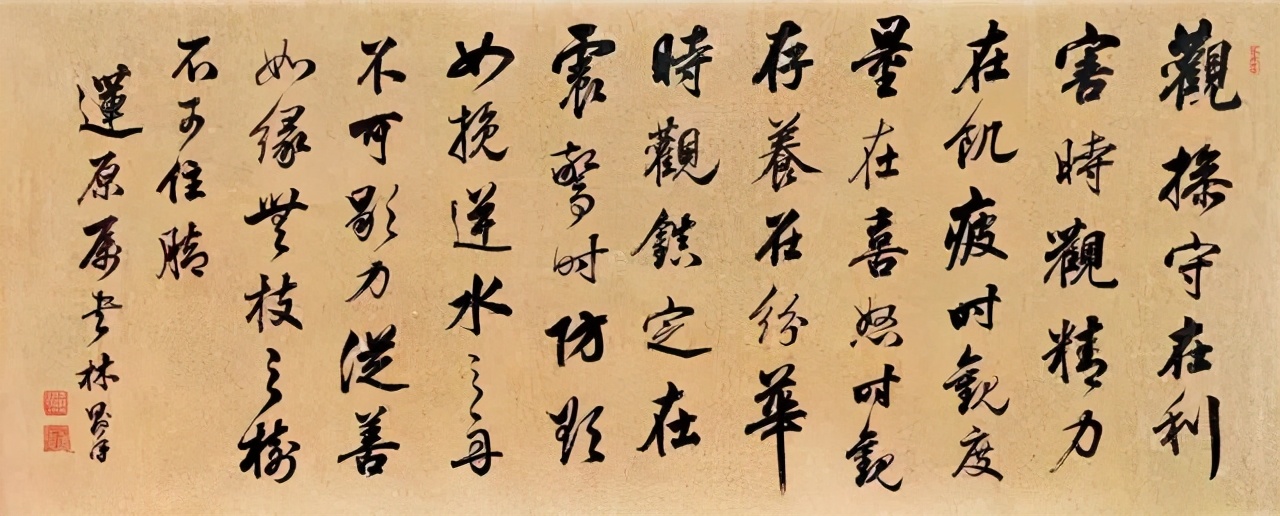 觀操守在利
害時觀精力
在飢疲时觀度
量在喜怒时觀
存養在紛華
時觀鎮定在
震驚时防欲
如挽逆水之舟
不可歇力從善
如緣無枝之樹
不可住腳
蓮原屬書林則徐